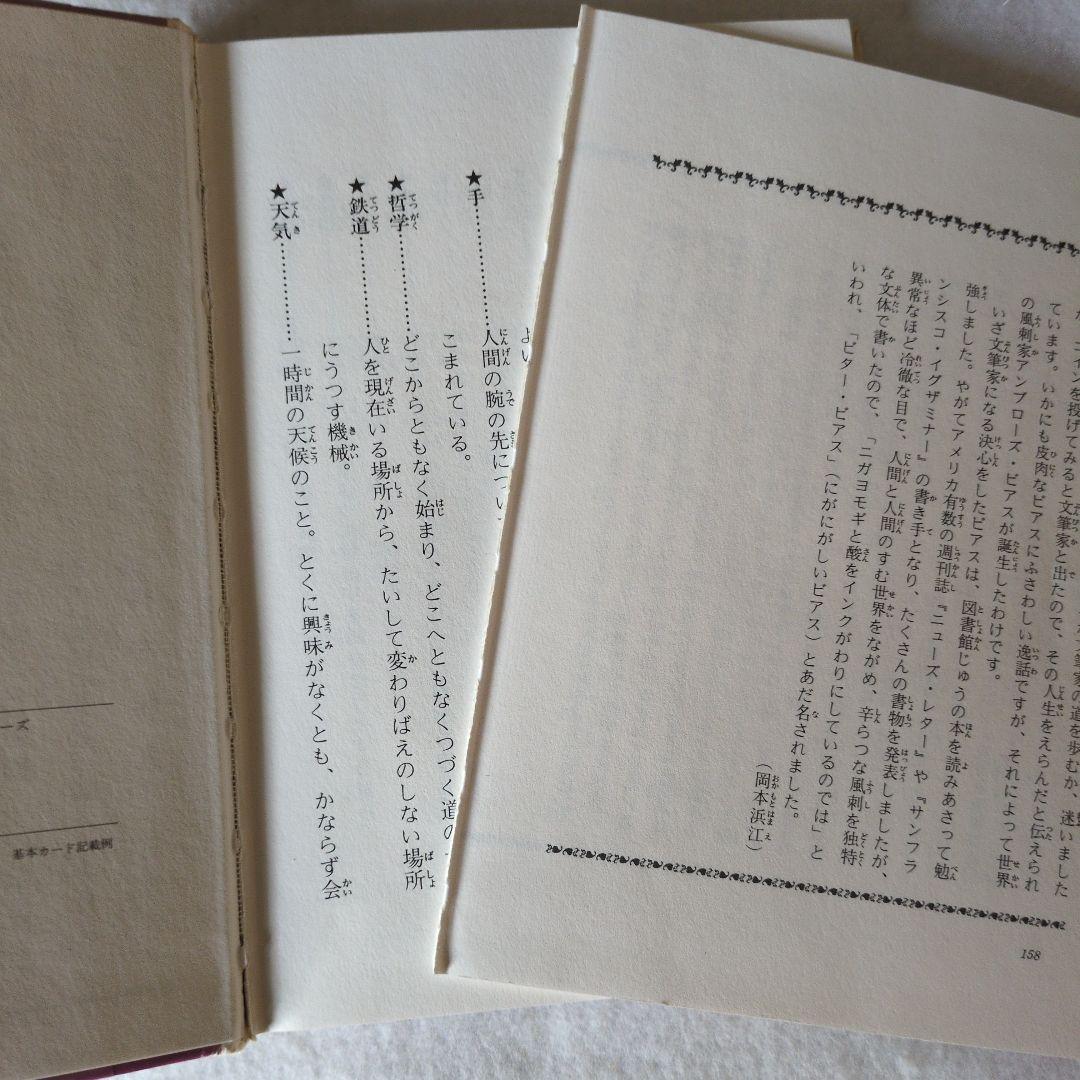 筆家の道を歩むか、迷いました
コインを投げてみると文筆家と出たので、その人生をえらんだと伝えられ
ています。いかにも皮肉なビアスにふさわしい逸話ですが、それによって世界
の風刺家アンブローズ・ビアスが誕生したわけです。
いざ文筆家になる決心をしたビアスは、図書館じゅうの本を読みあさって勉
強しました。やがてアメリカ有数の週刊誌『ニューズ・レター』や『サンフラ
ンシスコ・イグザミナー』の書き手となり、たくさんの書物を発表しましたが、
異常なほど冷徹な目で、人間と人間のすむ世界をながめ、辛らつな風刺を独特
な文体で書いたので、「ニガヨモギと酸をインクがわりにしているのでは」と
いわれ、「ビター・ビアス」(にがにがしいビアス)とあだ名されました。
(岡本浜江)
158
よい
★手…………人間の腕の先につい
こまれている。
★哲学…………どこからともなく始まり、どこへともなくつづく道の
★鉄道…………人を現在いる場所から、たいして変わりばえのしない場所
にうつす機械。
★天気…………一時間の天候のこと。とくに興味がなくとも、かならず会
ーズ
基本カード記載例